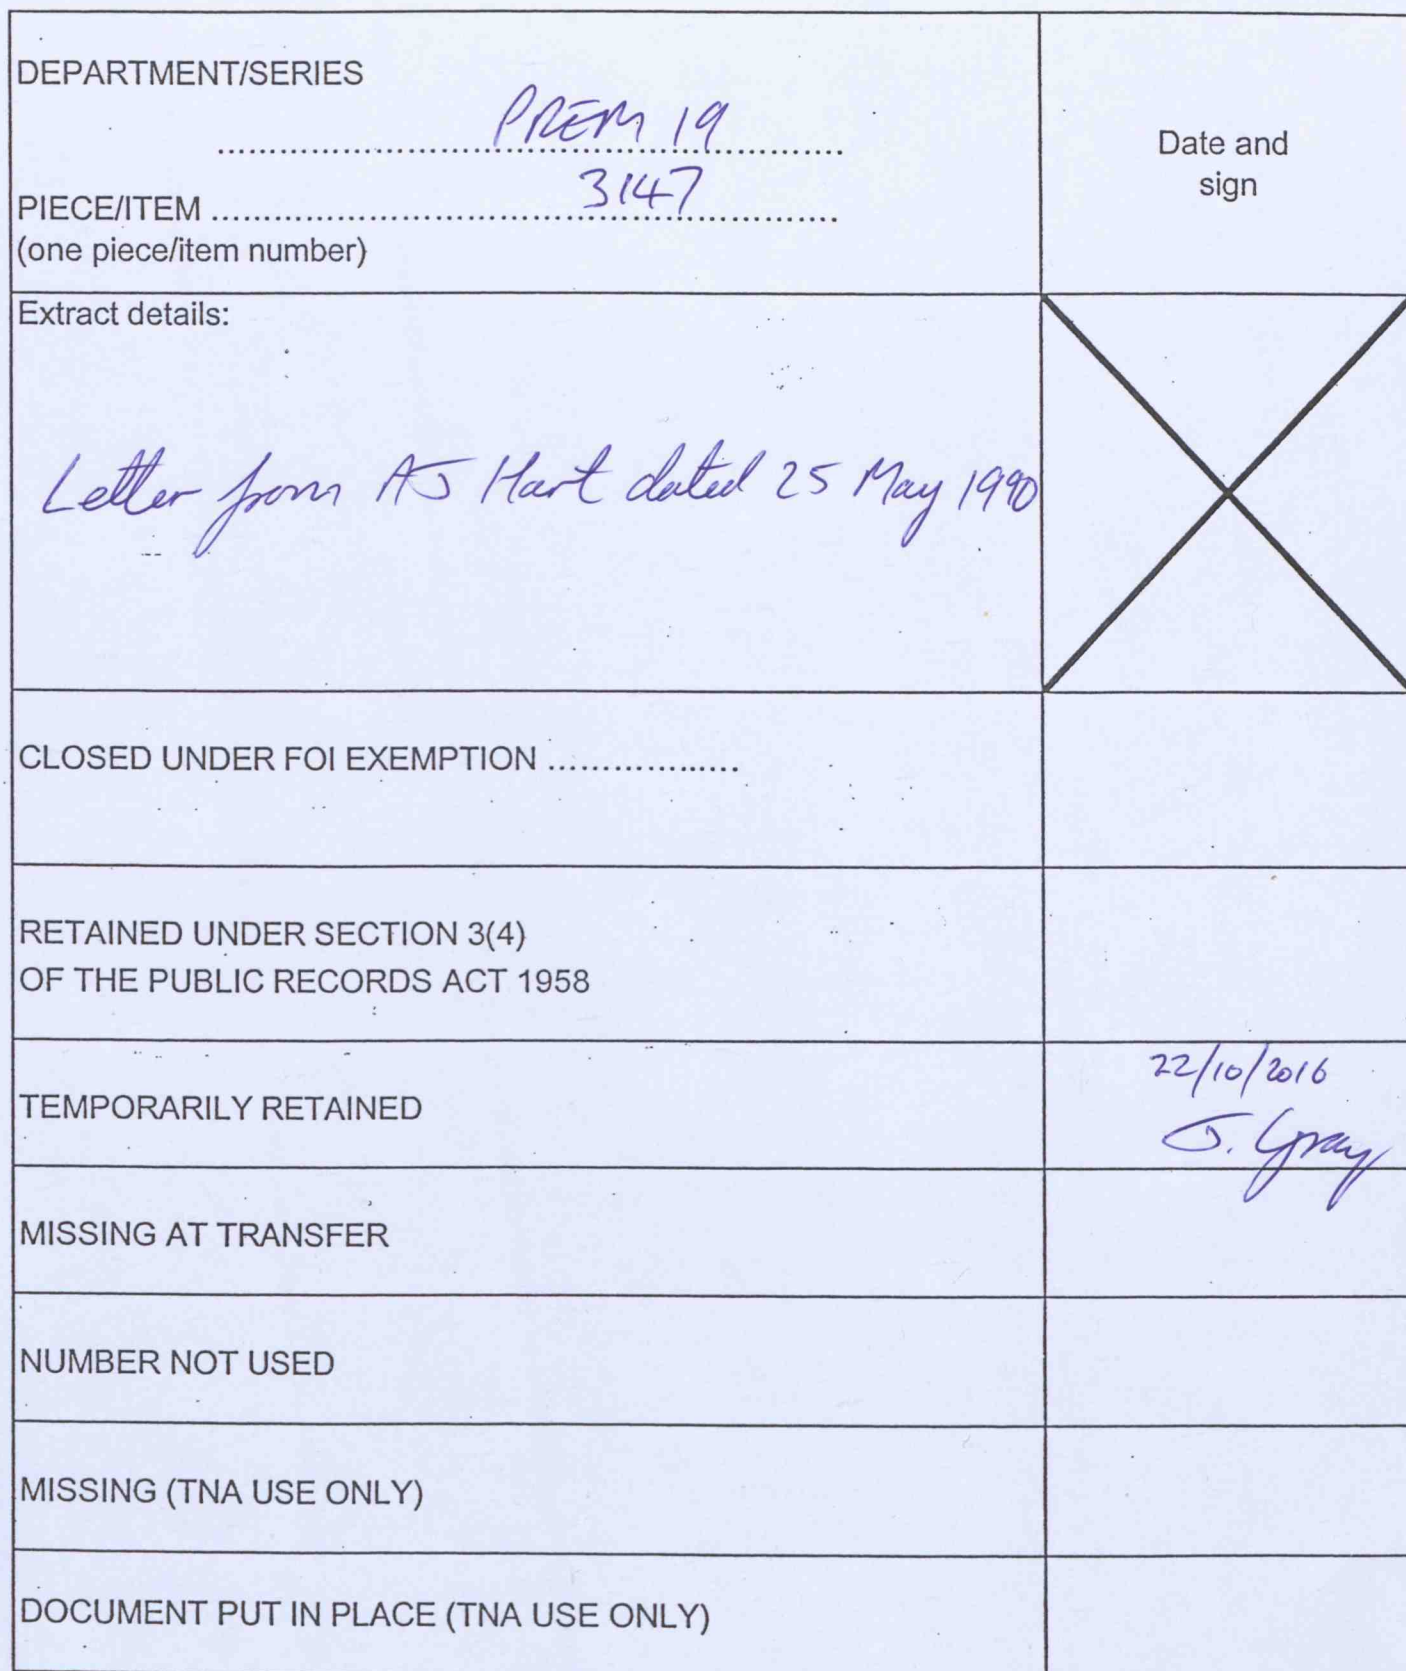 DEPARTMENT/SERIES
PREM 19
Date and
sign
PIECE/ITEM
3147
(one piece/item number)
Extract details:
Letter from AJ Hart dated 25 May 1990
CLOSED UNDER FOI EXEMPTION
RETAINED UNDER SECTION 3(4)
OF THE PUBLIC RECORDS ACT 1958
TEMPORARILY RETAINED
22/10/2016
J. Gray
MISSING AT TRANSFER
NUMBER NOT USED
MISSING (TNA USE ONLY)
DOCUMENT PUT IN PLACE (TNA USE ONLY)